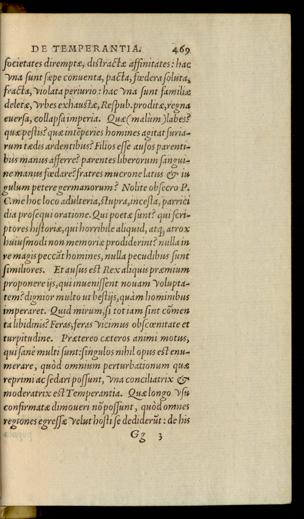 DE TEMPERANTIA. 469
societates diremptæ, distractæ affinitates: hac
vna sunt sæpe conuenta, pacta, fœdera soluta,
fracta, violata periurio: hac vna sunt familiæ
deletæ, vrbes exhaustæ, Respub. proditæ, regna
euersa, collapsa imperia. Quæ (malum) labes?
quæ pestis? quæ intẽperies homines agitat furia-
rum tædis ardentibus? Filios esse ausos parenti-
bus manus afferre? parentes liberorum sangui-
ne manus fœdare? fratres mucrone latus & iu
gulum petere germanorum? Nolite obsecro P.
C. me hoc loco adulteria, stupra, incesta, parrici
dia prosequi oratione. Qui poetæ sunt? qui scri-
ptores historiæ, qui horribile aliquid, atq; atrox
huiusmodi non memoriæ prodiderint? nulla in
re magis peccãt homines, nulla pecudibus sunt
similiores. Et ausus est Rex aliquis præmium
proponere ijs, qui inuenissent nouam volupta-
tem? dignior multo vt bestijs, quàm hominibus
imperaret. Quid mirum, si tot iam sint cõmen
ta libidinis? Feras, feras vicimus obscœnitate et
turpitudine. Prætereo cæteros animi motus,
qui sanè multi sunt: singulos nihil opus est enu-
merare, quòd omnium perturbationum quæ
reprimi ac sedari possunt, vna conciliatrix &
moderatrix est Temperantia. Quæ longo vsu
confirmatæ dimoueri nõ possunt, quòd omnes
regiones egressæ velut hosti se dediderũt: de his
Gg 3